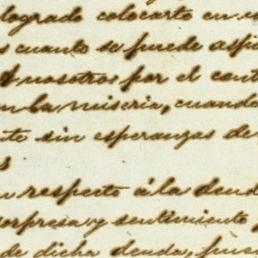 logrado colocarlo en
cuanto se puede
nosotros por el
la miseria, cuando
sin esperanzas de
respecto á la deuda
sorpresa y sentimiento
de dicha deuda,